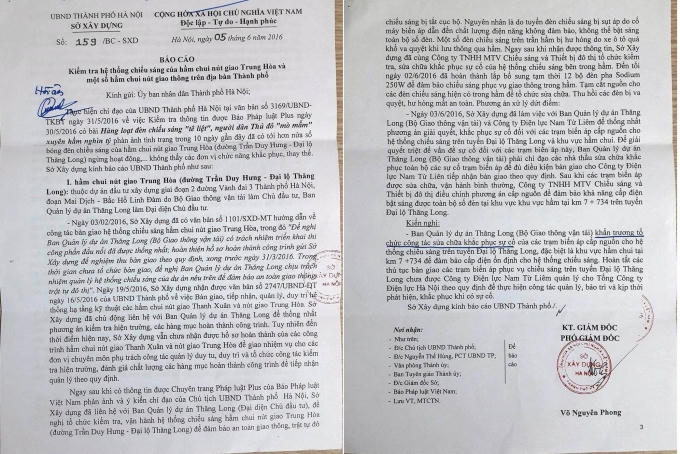 UBND THÀNH PHỐ HÀ NỘI
SỞ XÂY DỰNG
Số: 159 /BC -SXD
CỘNG HÒA XÃ HỘI CHỦ NGHĨA VIỆT NAM
Độc lập - Tự do - Hạnh phúc
Hà Nội, ngày 05 tháng 6 năm 2016
BÁO CÁO
Kiểm tra hệ thống chiếu sáng của hầm chui nút giao Trung Hòa và
một số hầm chui nút giao thông trên địa bàn Thành phố
Kính gửi: Ủy ban nhân dân Thành phố Hà Nội;
Thực hiện chỉ đạo của UBND Thành phố Hà Nội tại văn bản số 3169/UBND-
TKBT ngày 31/5/2016 về việc Kiểm tra thông tin được Báo Pháp luật Plus ngày
30/5/2016 có bài Hàng loạt đèn chiếu sáng "tê liệt", người dân Thủ đô "mò mẫm"
xuyên hầm nghìn tỷ phản ánh tình trạng trong 10 ngày gần đây đã có tới hơn nửa số
bóng đèn chiếu sáng của hầm chui nút giao Trung Hòa (đường Trần Duy Hưng - Đại lộ
Thăng Long) ngừng hoạt động,... không thấy các đơn vị chức năng khắc phục, thay thế.
Sở Xây dựng kính báo cáo UBND Thành phố như sau:
1. hầm chui nút giao Trung Hòa (đường Trần Duy Hưng - Đại lộ Thăng
Long): thuộc dự án đầu tư xây dựng giai đoạn 2 đường Vành đai 3 Thành phố Hà Nội,
đoạn Mai Dịch - Bắc Hồ Linh Đàm do Bộ Giao thông vận tải làm Chủ đầu tư, Ban
Quản lý dự án Thăng Long làm Đại diện Chủ đầu tư.
- Ngày 03/02/2016, Sở Xây dựng đã có văn bản số 1101/SXD-MT hướng dẫn về
công tác bàn giao hệ thống chiếu sáng hầm chui nút giao Trung Hòa, trong đó "Đề nghị
Ban Quản lý dự án Thăng Long (Bộ Giao thông vận tải) có trách nhiệm triển khai thi
công phần đấu nối đã được thống nhất; hoàn thiện hồ sơ hoàn thành công trình gửi Sở
Xây dựng để nghiệm thu bàn giao theo quy định, xong trước ngày 31/3/2016. Trong
thời gian chưa tổ chức bàn giao, đề nghị Ban Quản lý dự án Thăng Long chịu trách
nhiệm quản lý hệ thống chiếu sáng của dự án nêu trên để đảm bảo an toàn giao thông,
trật tự đô thị". Ngày 19/5/2016, Sở Xây dựng nhận được văn bản số 2747/UBND-ĐT
ngày 16/5/2016 của UBND Thành phố về việc Bàn giao, tiếp nhận, quản lý, duy trì hệ
thống hạ tầng kỹ thuật các hầm chui nút giao Thanh Xuân và nút giao Trung Hòa. Sở
Xây dựng đã chủ động liên hệ với Ban Quản lý dự án Thăng Long để thống nhất
phương án kiểm tra hiện trường, các hạng mục hoàn thành công trình. Tuy nhiên đến
thời điểm hiện nay, Sở Xây dựng vẫn chưa nhận được hồ sơ hoàn thành của các công
trình hầm chui nút giao Thanh Xuân và nút giao Trung Hòa để giao nhiệm vụ cho các
đơn vị chuyên môn phụ trách công tác quản lý duy tu, duy trì và tổ chức công tác kiểm
tra hiện trường, đánh giá chất lượng các hạng mục hoàn thành công trình để tiếp nhận
quản lý theo quy định.
Ngay sau khi có thông tin được Chuyên trang Pháp luật Plus của Báo Pháp luật
Việt Nam phản ánh và ý kiến chỉ đạo của Chủ tịch UBND Thành phố Hà Nội, Sở
Xây dựng đã liên hệ với Ban Quản lý dự án Thăng Long (Đại diện Chủ đầu tư), đề
nghị tổ chức kiểm tra, vận hành hệ thống chiếu sáng hầm chui nút giao Trung Hòa
(đường Trần Duy Hưng - Đại lộ Thăng Long) để đảm bảo an toàn giao thông, trật tự đô
chiếu sáng bị tắt cục bộ. Nguyên nhân là do tuyến đèn chiếu sáng bị sụt áp do cố
máy biến áp dẫn đến chất lượng điện năng không đảm bảo, không thể bật sáng
toàn bộ số đèn. Một số đèn chiếu sáng trên trần hầm bị hư hỏng do xe ô tô quá
khổ va quyệt khi lưu thông qua hầm. Ngay sau khi nhận được thông tin, Sở Xây
dựng đã cùng Công ty TNHH MTV Chiếu sáng và Thiết bị đô thị tổ chức kiểm
tra, sửa chữa khắc phục sự cố của hệ thống chiếu sáng bên trong hầm. Đến tối
ngày 02/6/2016 đã hoàn thành lắp bổ sung tạm thời 12 bộ đèn pha Sodium
250W để đảm bảo chiếu sáng phục vụ giao thông trong hầm. Tạm cắt nguồn cho
các đèn chiếu sáng hiện có trong hầm để tổ chức sửa chữa. Thu hồi các đèn bị va
quyệt, hư hỏng mất an toàn. Phương án xử lý dứt điểm:
- Ngày 03/6/2016, Sở Xây dựng đã làm việc với Ban Quản lý dự án Thăng
Long (Bộ Giao thông vận tải) và Công ty Điện lực Nam Từ Liêm để thống nhất
phương án giải quyết, khắc phục sự cố đối với các trạm biến áp cấp nguồn cho
hệ thống chiếu sáng trên tuyến Đại lộ Thăng Long và khu vực hầm chui. Để giải
quyết triệt để vấn đề sự cố đối với các trạm biến áp này, Ban Quản lý dự án
Thăng Long (Bộ Giao thông vận tải) phải chỉ đạo các nhà thầu sửa chữa khắc
phục toàn bộ các sự cố trạm biến áp để đủ điều kiện bàn giao cho Công ty Điện
lực Nam Từ Liêm tiếp nhận bàn giao theo quy định. Sau khi các trạm biến áp
được sửa chữa, vận hành bình thường, Công ty TNHH MTV Chiếu sáng và
Thiết bị đô thị điều chỉnh phương án cấp nguồn để đảm bảo khả năng cấp điện
bật sáng được toàn bộ số đèn tại khu vực khu vực hầm tại km 7 + 734 trên tuyến
Đại lộ Thăng Long.
Kiến nghị:
- Ban Quản lý dự án Thăng Long (Bộ Giao thông vận tải) khẩn trương tổ
chức công tác sửa chữa khắc phục sự cố của các trạm biến áp cấp nguồn cho hệ
thống chiếu sáng trên tuyến Đại lộ Thăng Long, đặc biệt là khu vực hầm chui tại
km 7 +734 để đảm bảo cấp điện ổn định cho hệ thống chiếu sáng. Hoàn tất các
thủ tục bàn giao các trạm biến áp phục vụ chiếu sáng trên tuyến Đại lộ Thăng
Long chưa được Công ty Điện lực Nam Từ Liêm quản lý cho Tổng Công ty
Điện lực Hà Nội theo quy định để thực hiện công tác quản lý, bảo trì và kịp thời
phát hiện, khắc phục khi có sự cố.
Sở Xây dựng kính báo cáo UBND Thành phố./.
Nơi nhận:
- Như trên;
- Đ/c Chủ tịch UBND Thành phố;
- Đ/c Nguyễn Thế Hùng, PCT UBND TP;
- Văn phòng Thành ủy;
- Ban Tuyên giáo Thành ủy;
- Đ/c Giám đốc Sở;
- Báo Pháp luật Việt Nam;
- Lưu VT, MTCTN.
Để
báo
cáo
KT. GIÁM ĐỐC
PHÓ GIÁM ĐỐC
SỞ
XÂY DỰNG
HÀ NỘI
Võ Nguyên Phong
3